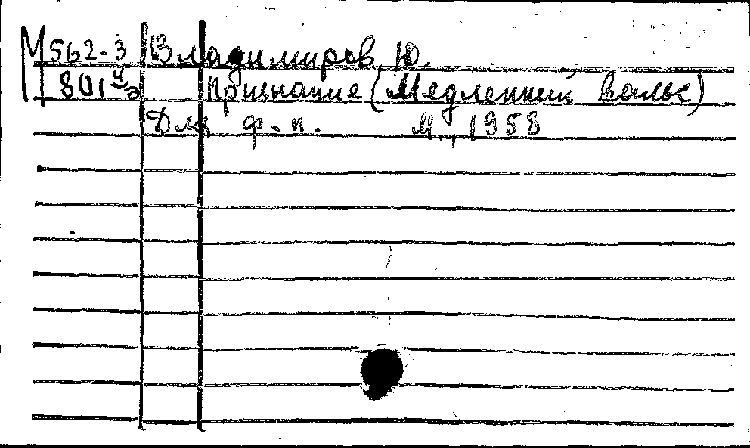 М 562-3 Владимиров, Ю.
801 Признание (Медленный вальс)
Для ф.-п. М., 1958